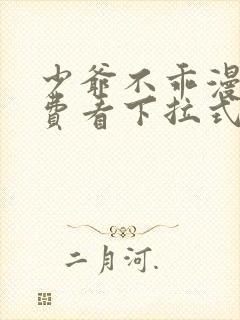 少爷不乖漫
费看下拉式
二月河.